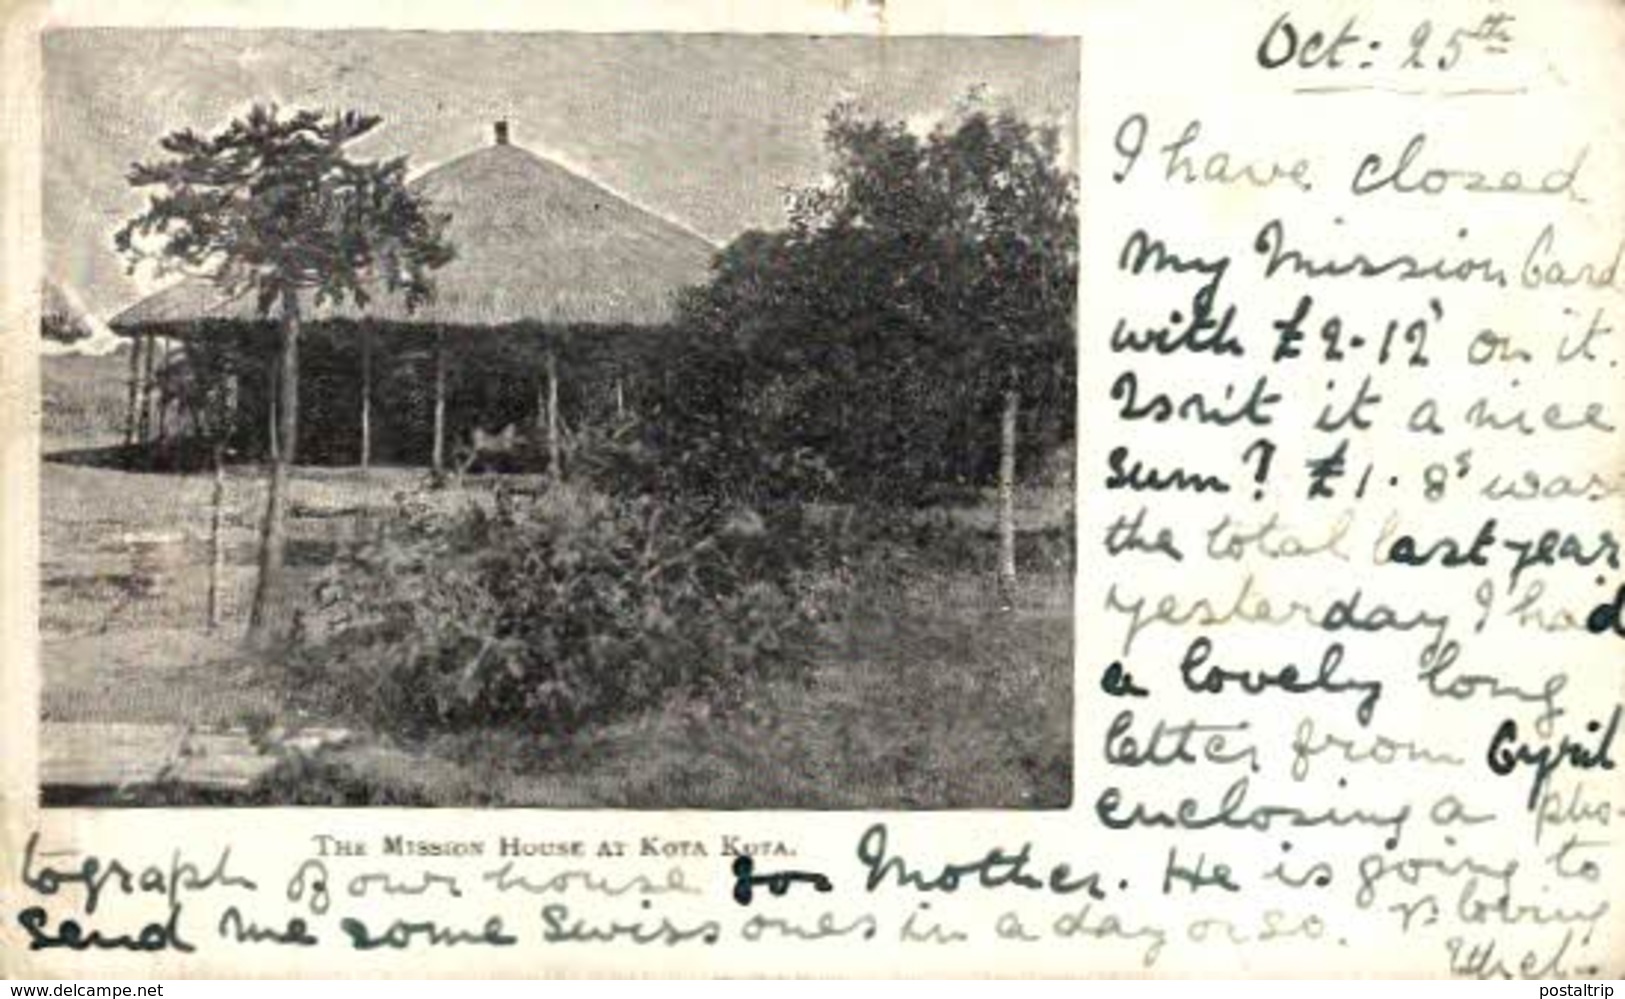 Oct: 25th
I have closed
my Mission Card
with £2-12s on it.
Isn't it a nice
sum? £1. 8s was
the total last year
yesterday I had
a lovely long
letter from Cyril
enclosing a pho-
THE MISSION HOUSE AT KOTA KOTA.
tograph of our house for Mother. He is going to
send me some Swiss ones in a day or so. loving
Ethel-
www.delcampe.net
postaltrip